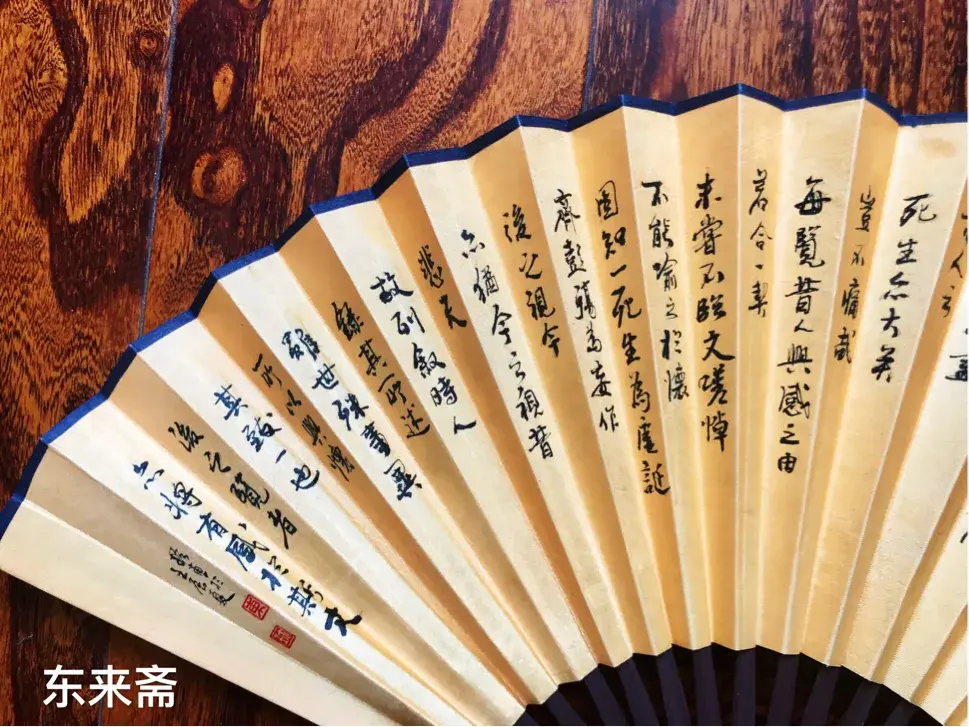 人云
死生亦大矣
豈不痛哉
每覽昔人興感之由
若合一契
未嘗不臨文嗟悼
不能喻之於懷
固知一死生為虛誕
齊彭殤為妄作
後之視今
亦猶今之視昔
悲夫
故列敘時人
錄其所述
雖世殊事異
所以興懷
其致一也
後之覽者
亦將有感於斯文
东来斋